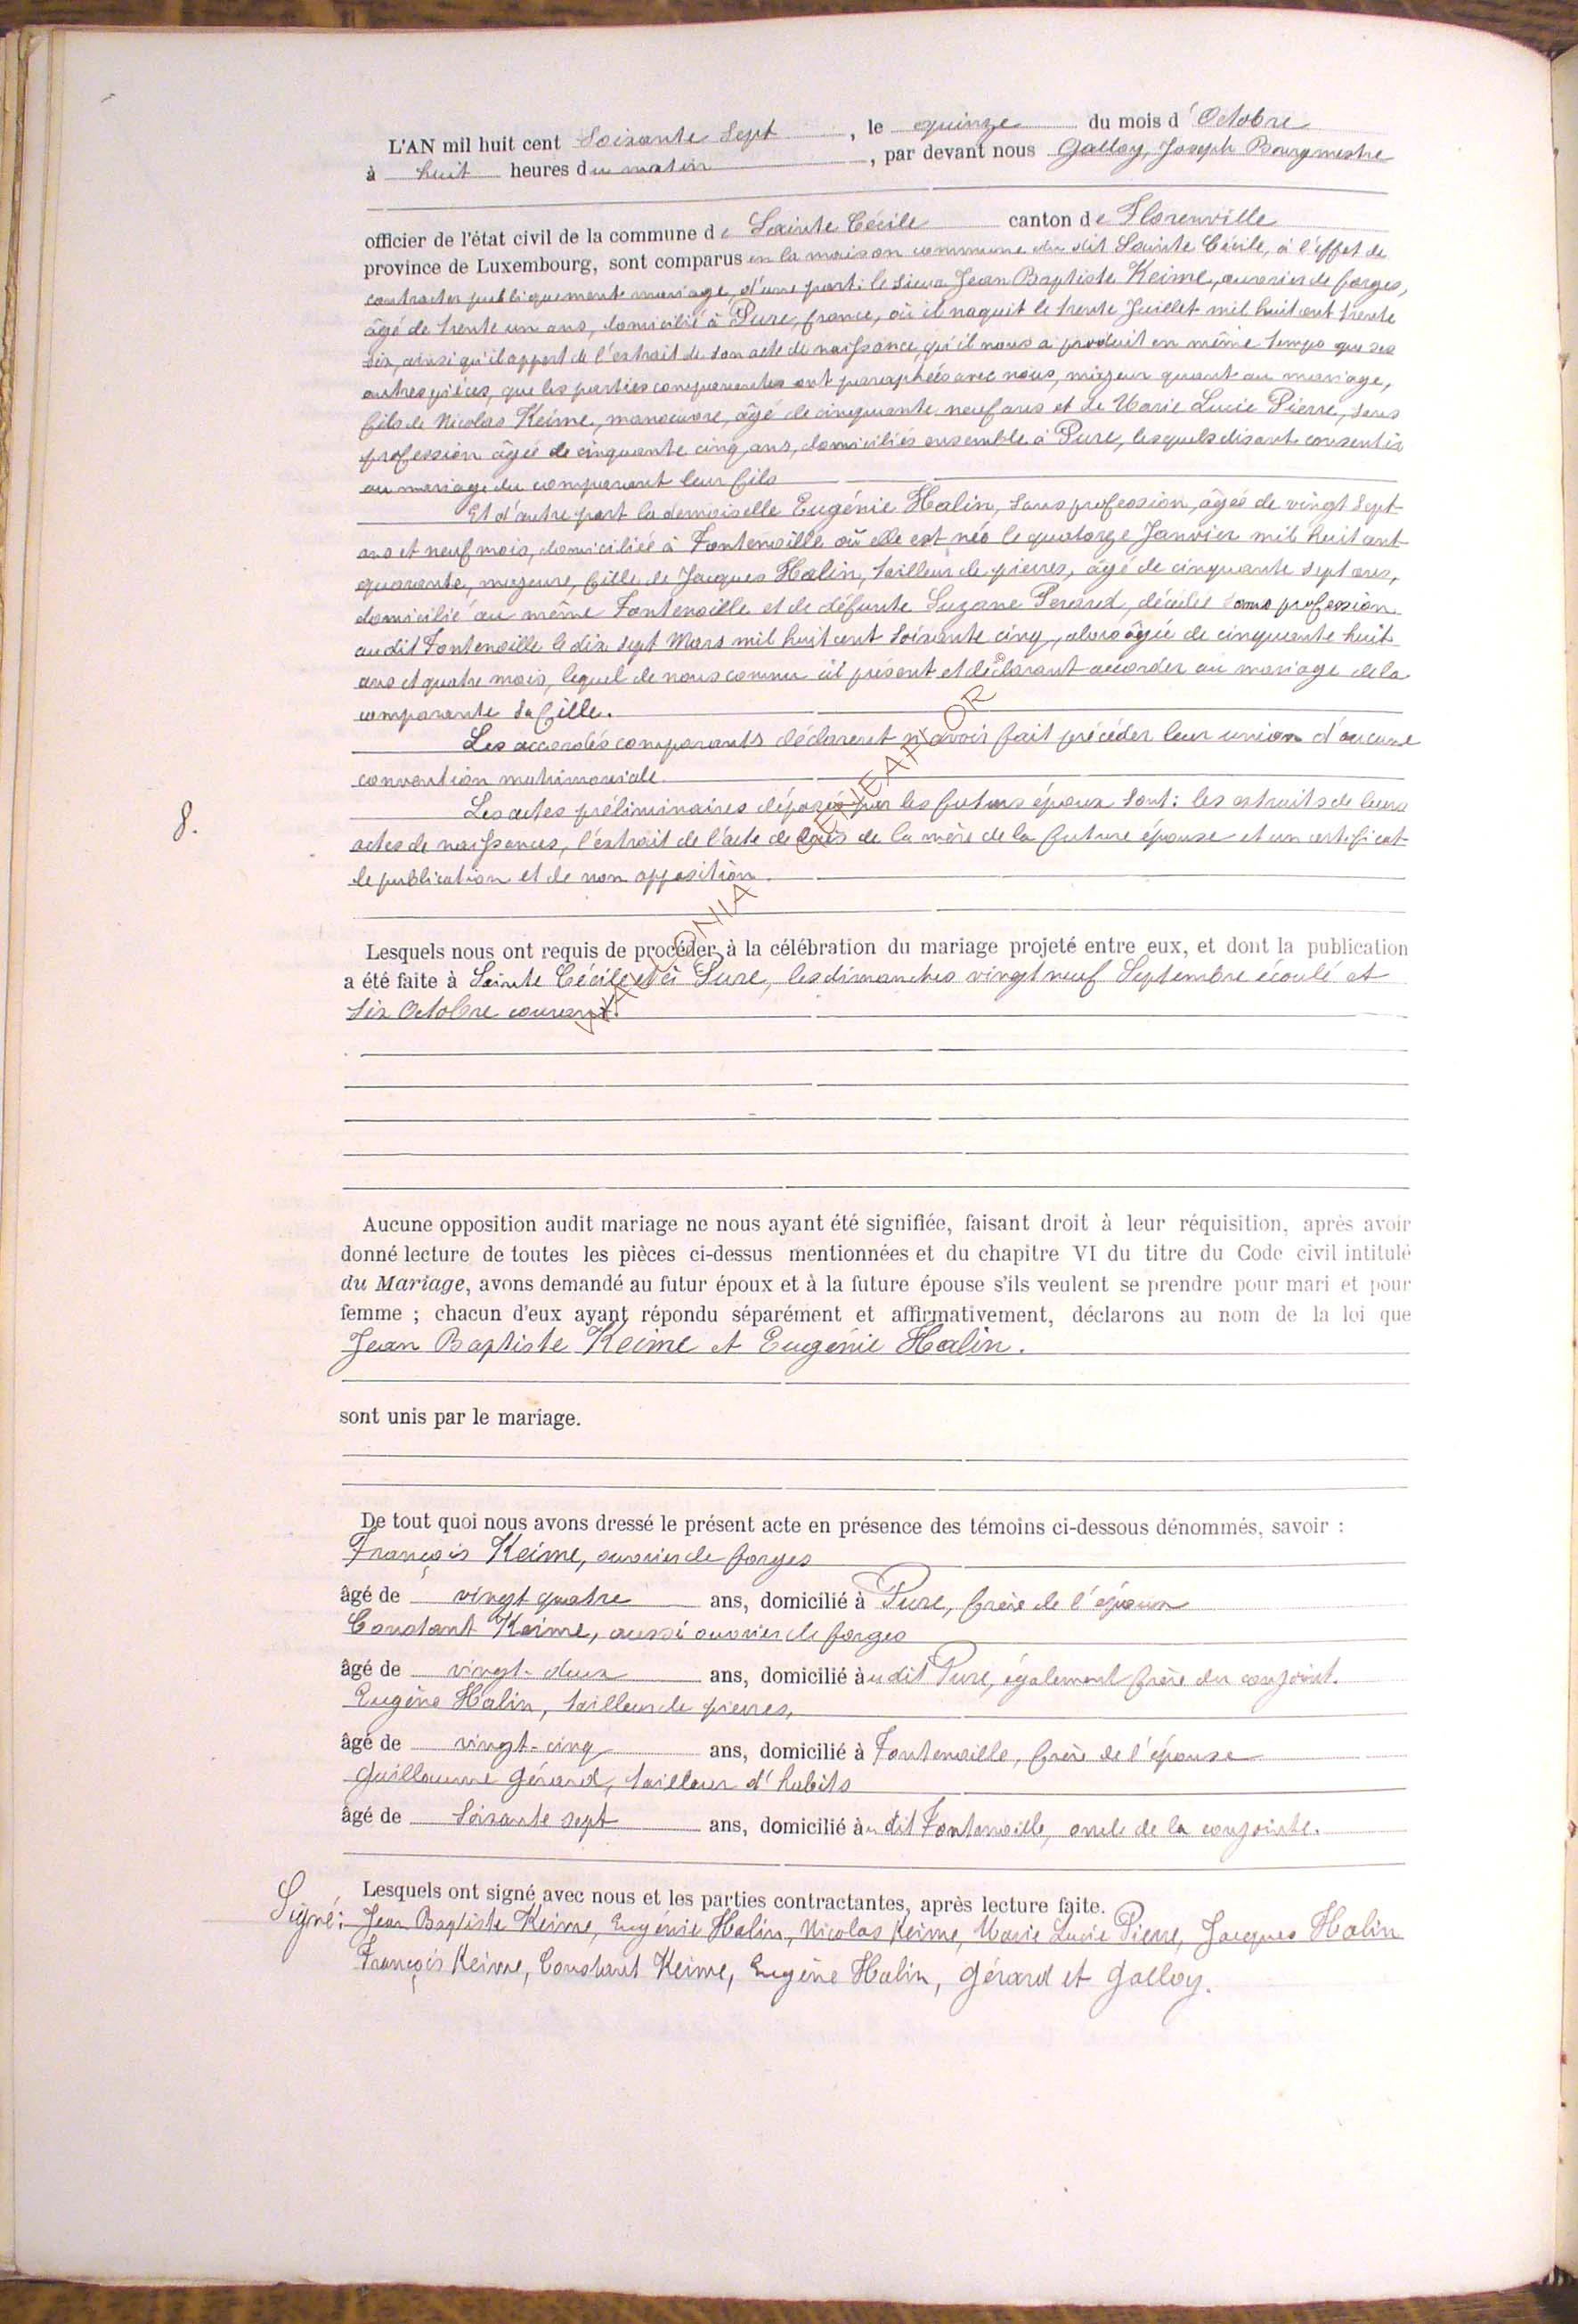 L'AN mil huit cent Soixante Sept, le quinze du mois d'Octobre
à huit heures du matin, par devant nous Galloy, Joseph Bourgmestre
officier de l'état civil de la commune de Sainte Cécile canton de Florenville
province de Luxembourg, sont comparus en la maison commune du dit Sainte Cécile, à l'effet de
contracter publiquement mariage, d'une part: le Sieur Jean Baptiste Keime, ouvrier de forges,
âgé de trente un ans, domicilié à Pure, france, où il naquit le trente Juillet mil huit cent trente
six, ainsi qu'il appert de l'extrait de son acte de naissance, qu'il nous a produit en même temps que ses
autres pièces, que les parties comparantes ont paraphées avec nous, majeur quant au mariage,
fils de Nicolas Keime, manoeuvre, âgé de cinquante neuf ans et de Marie Lucie Pierre, sans
profession âgée de cinquante cinq ans, domiciliés ensemble à Pure, lesquels disant consentir
au mariage du comparant leur fils
Et d'autre part la demoiselle Eugénie Halin, sans profession, âgée de vingt sept
ans et neuf mois, domiciliée à Fontenoille où elle est née le quatorze Janvier mil huit cent
quarante, majeure, fille de Jacques Halin, tailleur de pierres, âgé de cinquante sept ans,
domicilié au même Fontenoille et de défunte Suzane Gerard, décédée sans profession
audit Fontenoille le dix sept Mars mil huit cent Soixante cinq, alors âgée de cinquante huit
ans et quatre mois, lequel de nous connu ici présent et déclarant accorder au mariage de la
comparante sa fille.
Les accordés comparants déclarent n'avoir fait précéder leur union d'aucune
convention matrimoniale.
8.
Les actes préliminaires déposés par les futurs époux sont: les extraits de leurs
actes de naissances, l'extrait de l'acte de décès de la mère de la future épouse et un certificat
de publication et de non opposition.
Lesquels nous ont requis de procéder à la célébration du mariage projeté entre eux, et dont la publication
a été faite à Sainte Cécile et à Pure, les dimanches vingt neuf Septembre écoulé et
six Octobre courant.
Aucune opposition audit mariage ne nous ayant été signifiée, faisant droit à leur réquisition, après avoir
donné lecture de toutes les pièces ci-dessus mentionnées et du chapitre VI du titre du Code civil intitulé
du Mariage, avons demandé au futur époux et à la future épouse s'ils veulent se prendre pour mari et pour
femme ; chacun d'eux ayant répondu séparément et affirmativement, déclarons au nom de la loi que
Jean Baptiste Keime et Eugénie Halin.
sont unis par le mariage.
De tout quoi nous avons dressé le présent acte en présence des témoins ci-dessous dénommés, savoir :
François Keime, ouvrier de forges
âgé de vingt quatre ans, domicilié à Pure, frère de l'époux
Constant Keime, aussi ouvrier de forges
âgé de vingt-deux ans, domicilié audit Pure, également frère du conjoint.
Eugène Halin, tailleur de pierres,
âgé de vingt-cinq ans, domicilié à Fontenoille, frère de l'épouse
Guillaume Gérard, tailleur d'habits
âgé de Soixante sept ans, domicilié au dit Fontenoille, oncle de la conjointe.
Lesquels ont signé avec nous et les parties contractantes, après lecture faite.
Signé: Jean Baptiste Keime, Eugénie Halin, Nicolas Keime, Marie Lucie Pierre, Jacques Halin
François Keime, Constant Keime, Eugène Halin, Gérard et Galloy.